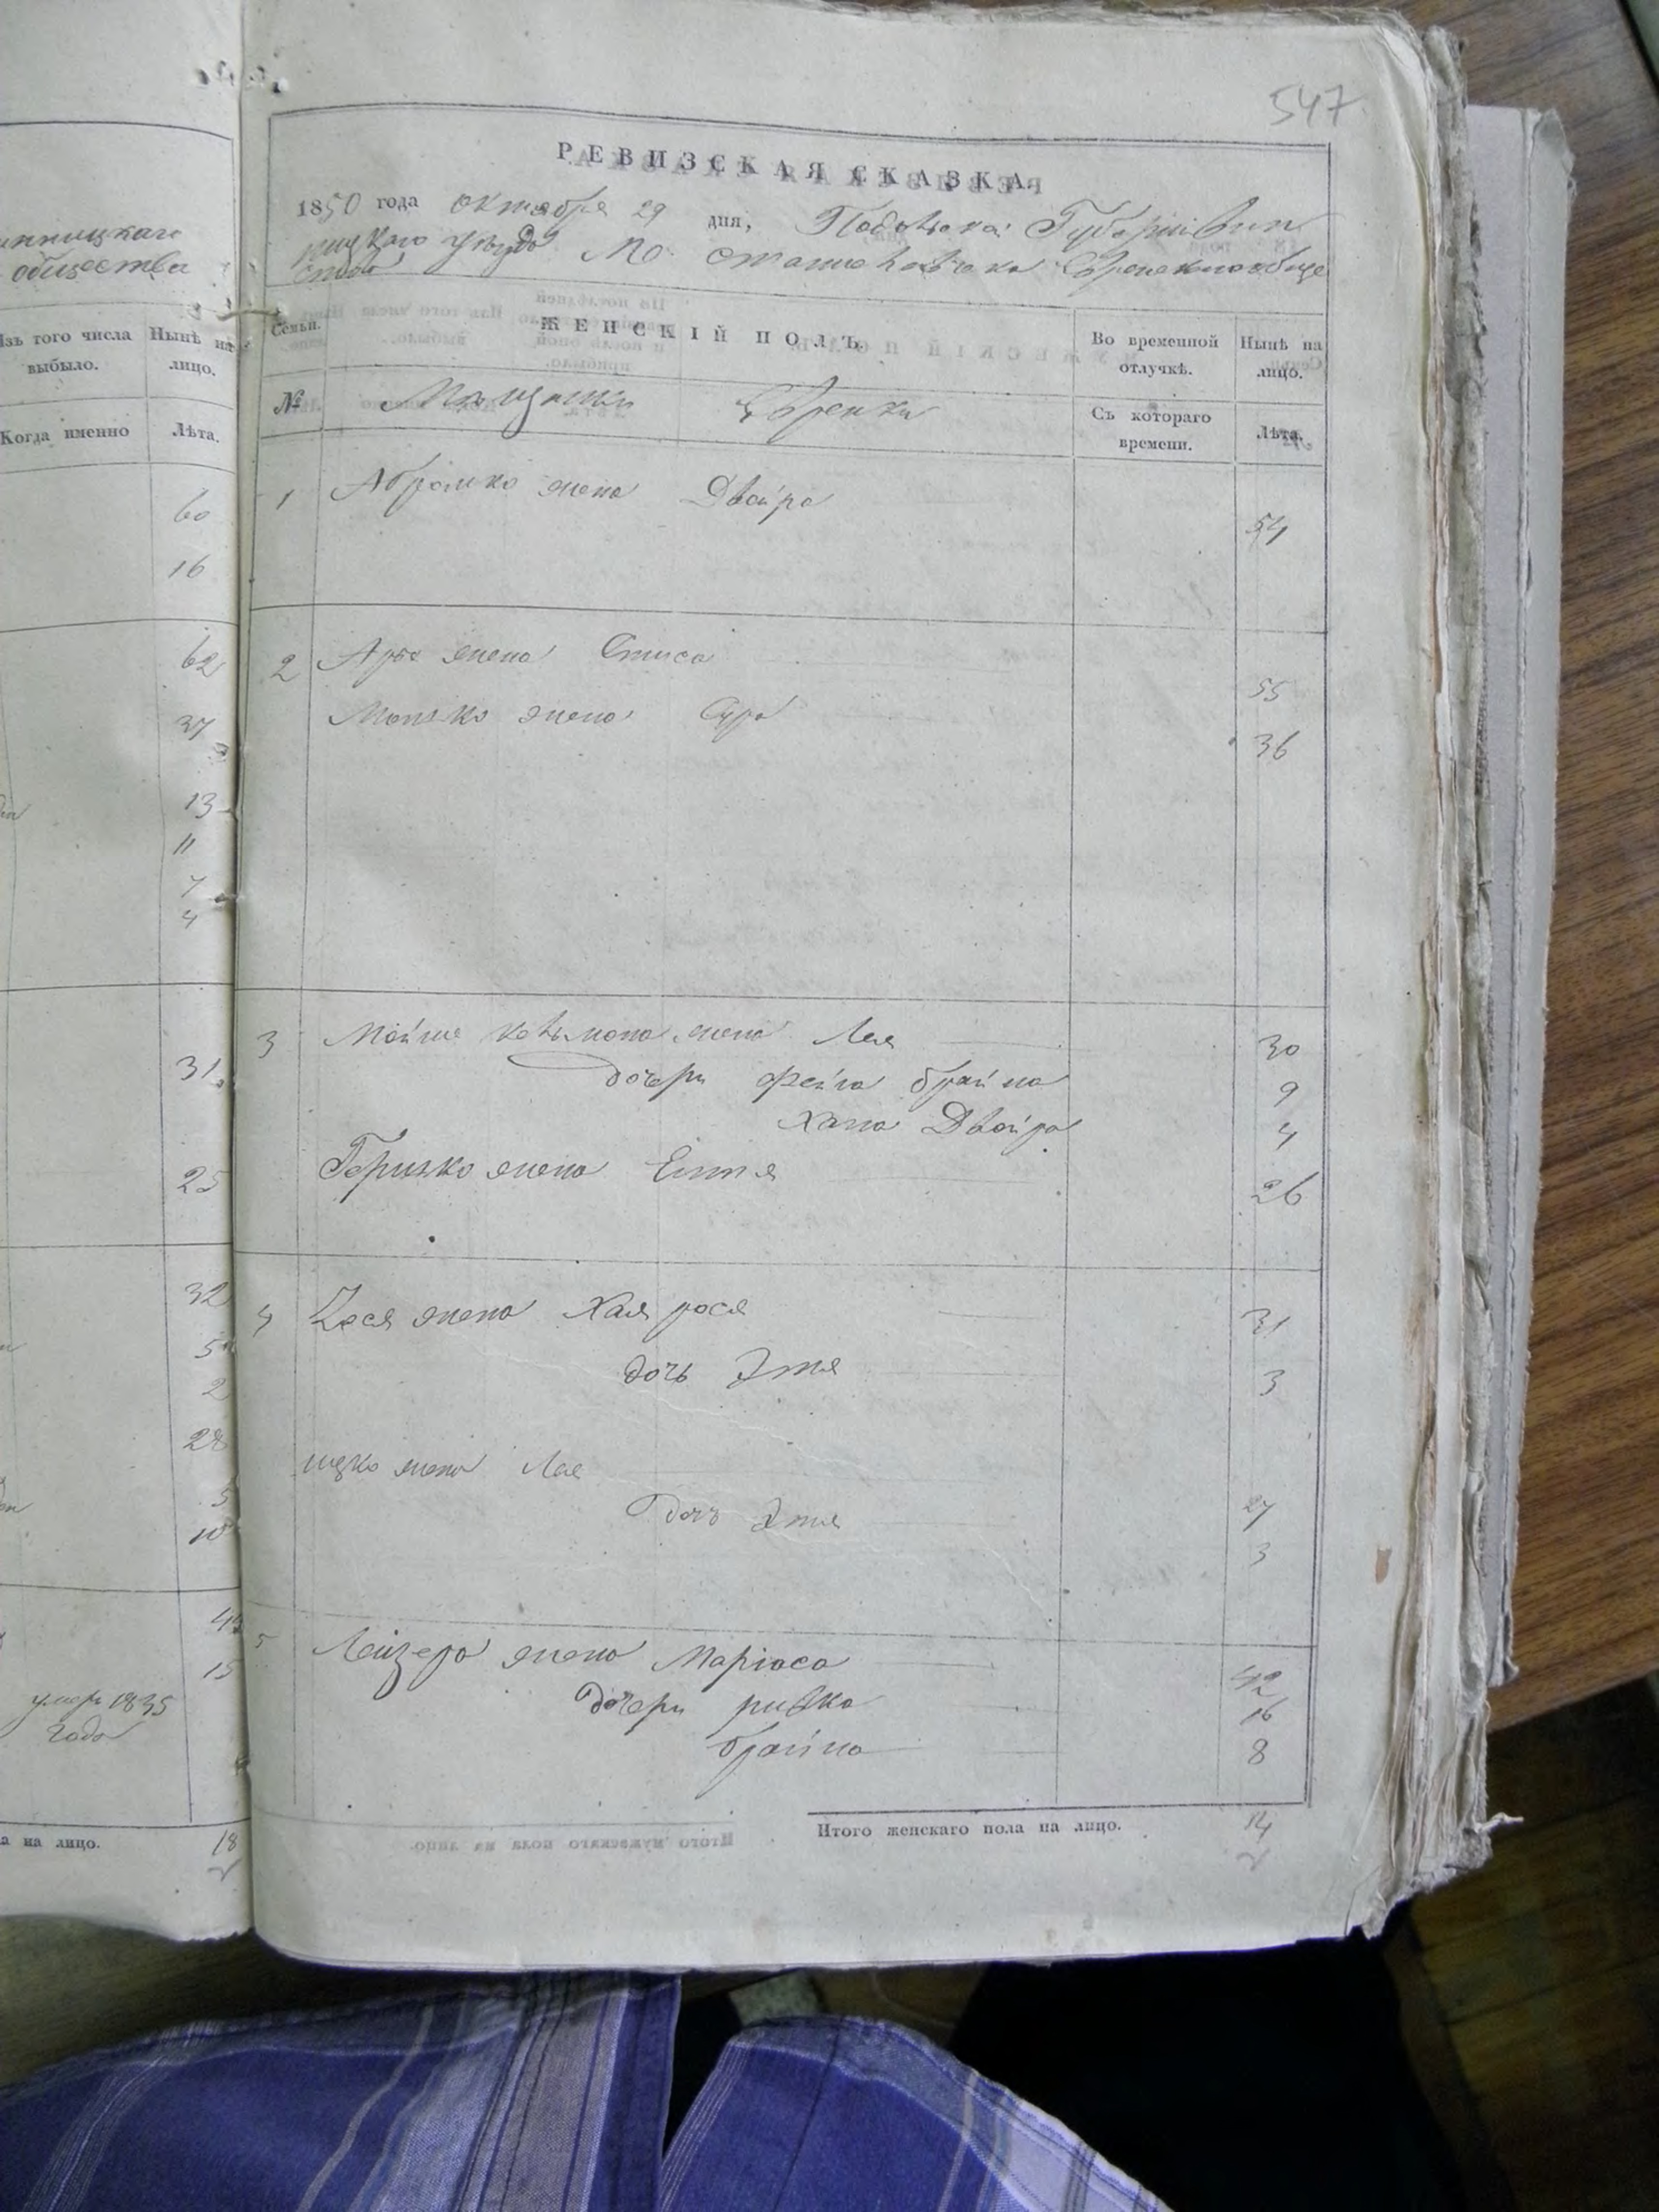 нницкаго
общества
Изъ того числа выбыло.
Нынѣ на лицо.
Когда именно
Лѣта.
60
16
62
37
13
11
7
4
31
25
32
5
2
28
5
10
15
умеръ 1835
года
на лицо.
18
547
РЕВИЗСКАЯ СКАЗКА
1850 года октября 29 дня, Подольской Губерніи Вин
ницкаго уѣзда М. Еврейскаго обще
ства
Семьи.
ЖЕНСКІЙ ПОЛЪ.
Во временной отлучкѣ.
Нынѣ на лицо.
№
Мѣщанки Евреики
Съ котораго времени.
Лѣта.
1 Абрамко жена Двойра
54
2 жена
55
Мошко жена Сура
36
3 Мойше жена Лея 30
дочери фейга брайна 9
Хана Двойра 4
Гершко жена 26
4 жена Хая рося 31
дочь Этя 3
ицко жена Лея
27
дочь Этя
3
5 Лейзера жена Маріаса 42
дочери ривка 16
брайна 8
Итого женскаго пола на лицо. 14